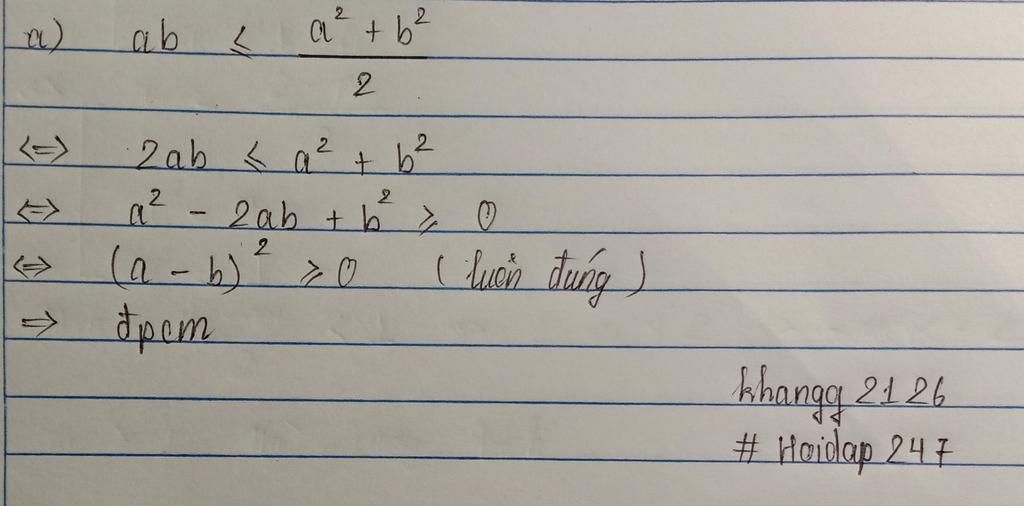 a) ab ≤ a² + b² / 2
<=> 2ab ≤ a² + b²
<=> a² - 2ab + b² ≥ 0
<=> (a - b)² ≥ 0 (luôn đúng)
=> đpcm
khangg 2126
# Hoidap 247